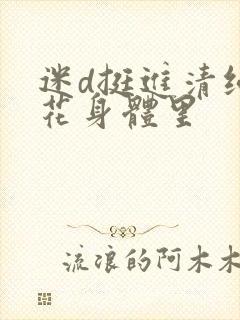 迷d挺进清纯
花身體里
流浪的阿木木